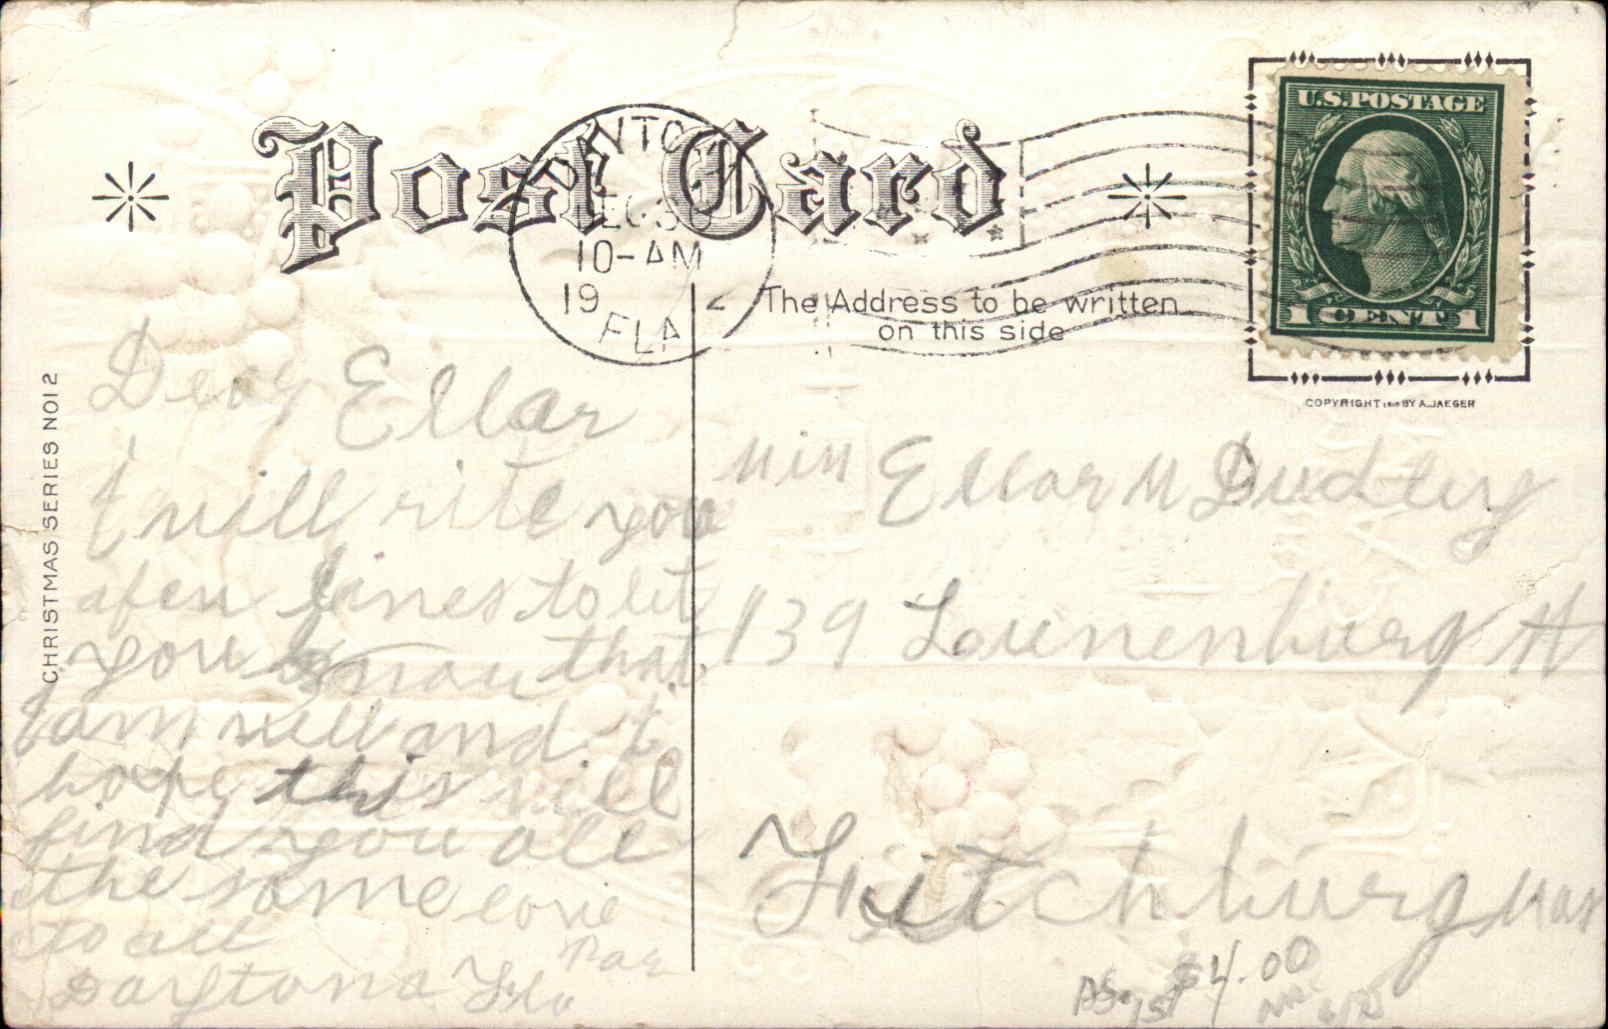 Post Card
DAYTO
DEC 30
10-AM
19 2
FLA
U.S. POSTAGE
1 CENT 1
The Address to be written
on this side
COPYRIGHT BY A. JAEGER
CHRISTMAS SERIES NO 12
Dear Ellar
I will rite you
a few lines to let
you know that
I am well and I
hope this will
find you all
the same love
to all
Daytona Fla
Miss Ellar M Dudley
139 Lounenburg St
Fitchburg Mas
$4.00